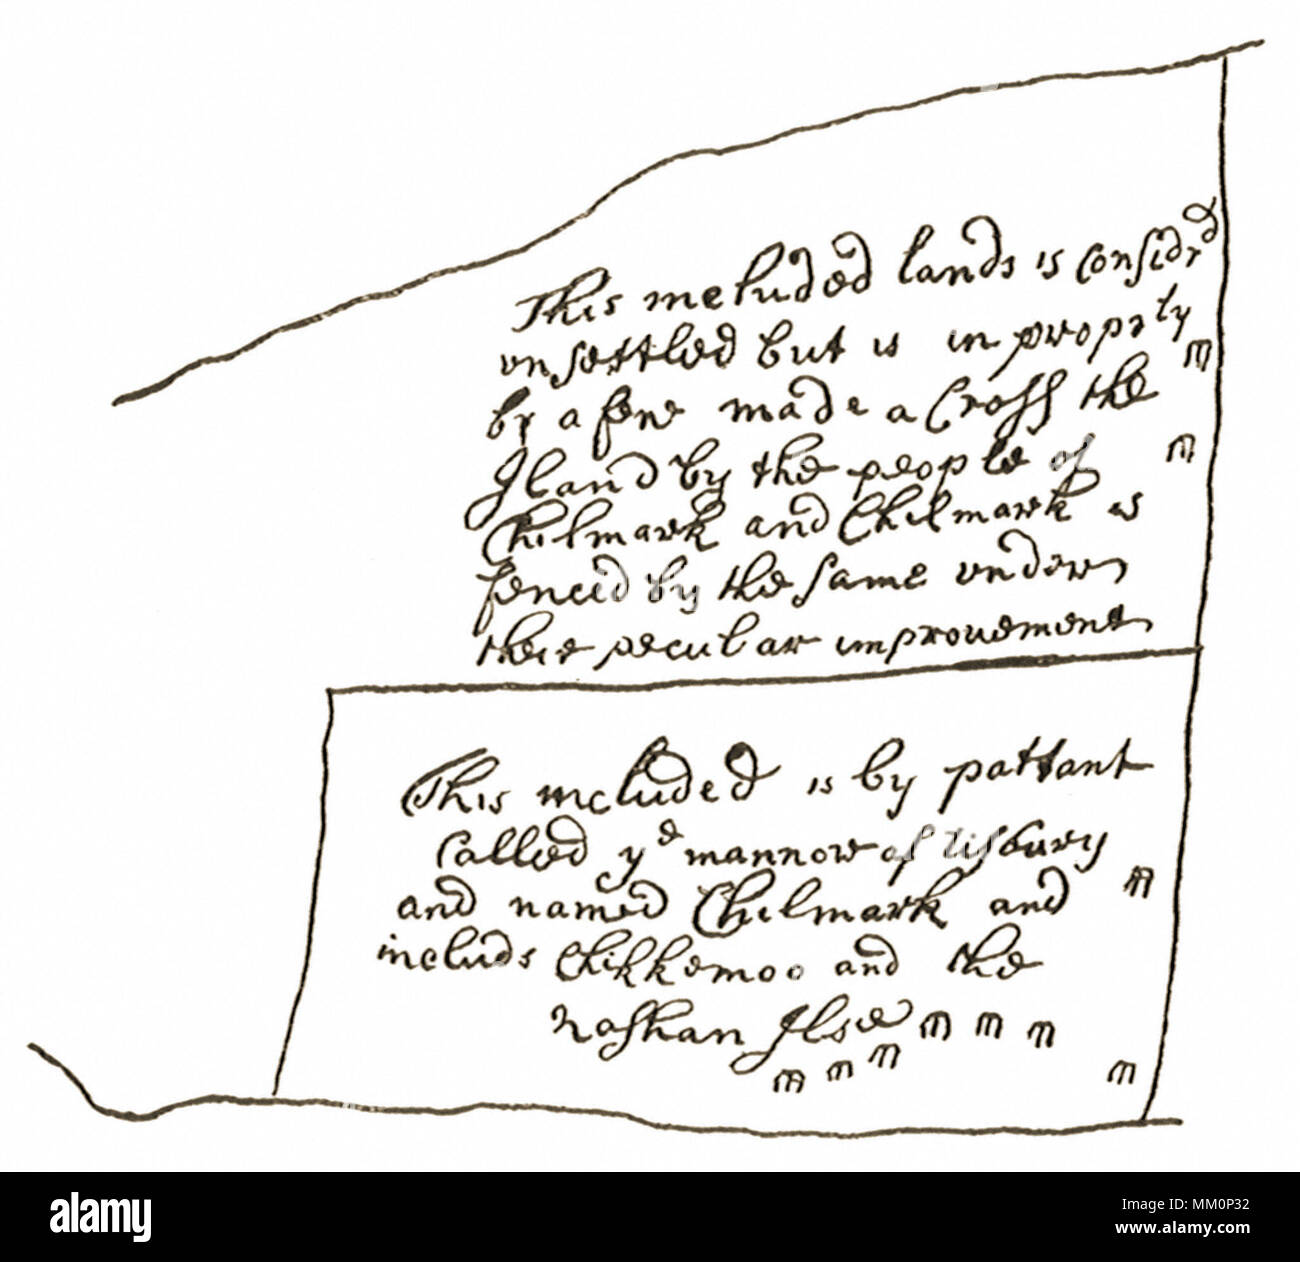 This included lands is considrd
unsettled but is in proprly
by a fenc made a Cross the
Iland by the people of
Chilmark and Chilmark is
fenced by the same undern
theire peculiar improuement
This included is by pattant
Called ye mannore of tisbury
and named Chilmark and
includs Chikkemoo and the
Nashan Ilse
alamy
Image ID: MM0P32
www.alamy.com